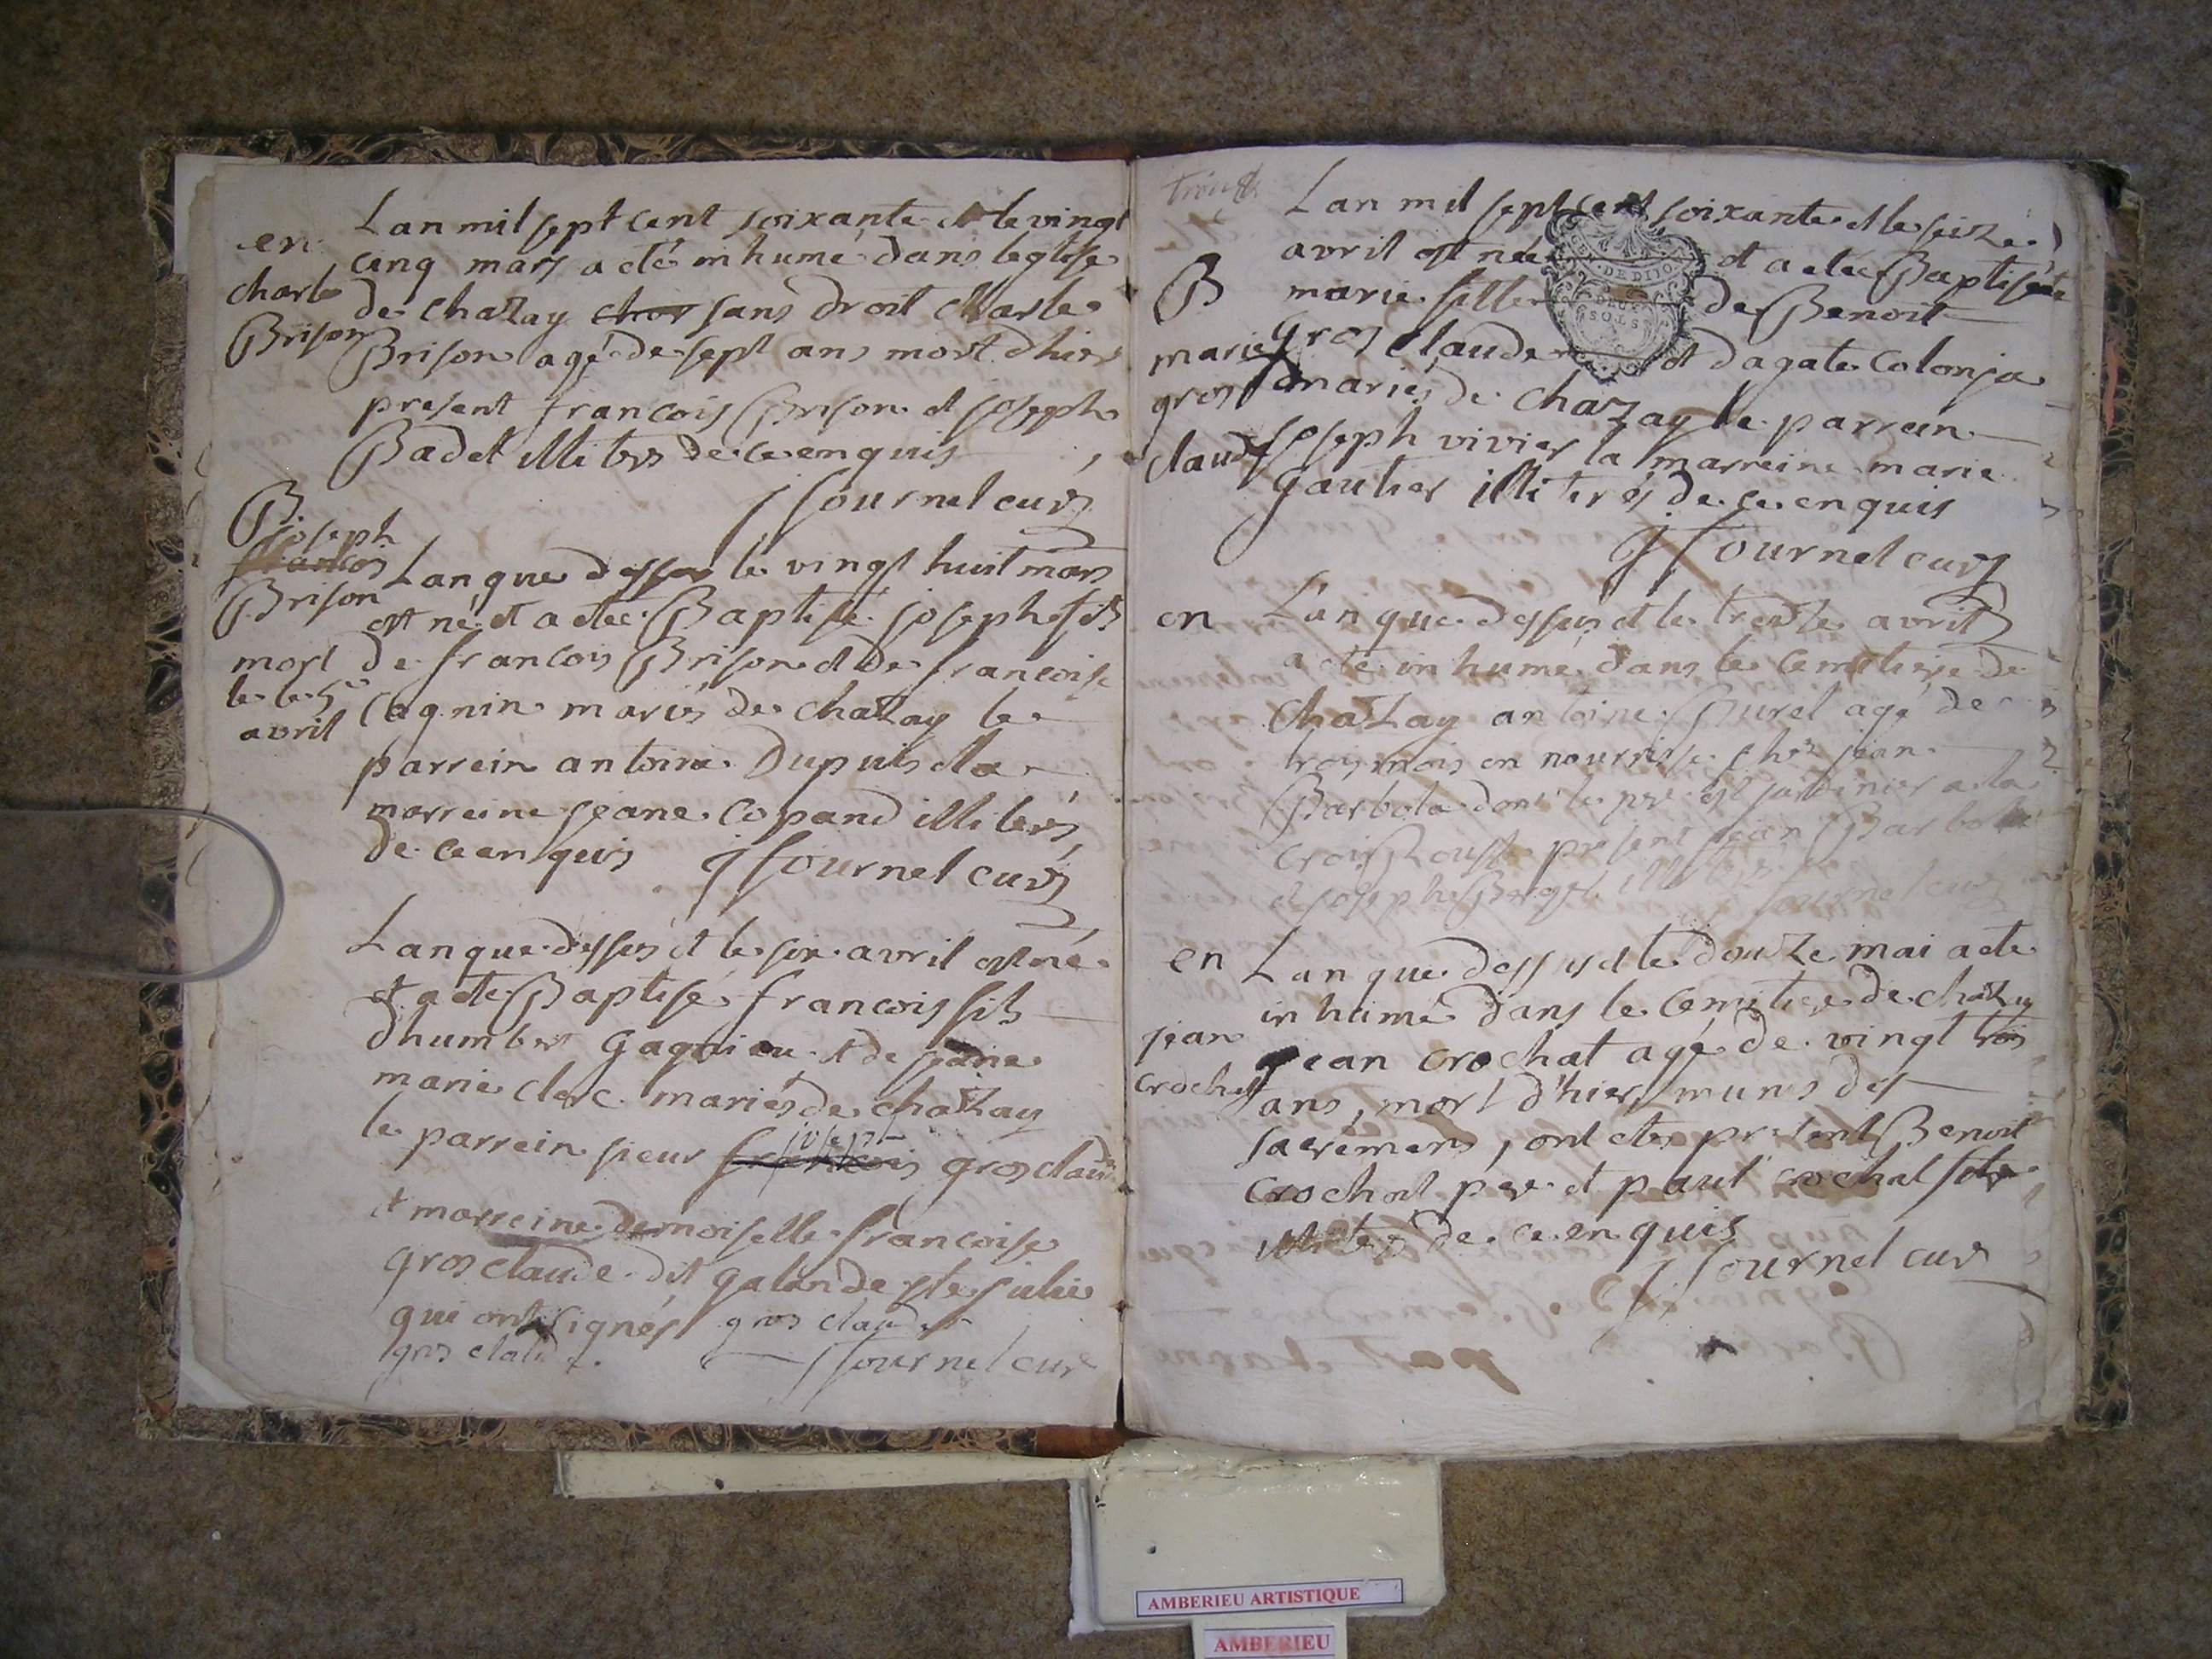 Lan mil sept cent soixante et le vingt
en
cinq mars a eté inhumé dans leglise
charle
de chazay sans droit charle
Brison
Brison agé de sept ans mort dhier
present francois Brison et joseph
Badet illiters de ce enquis
J fournel curé
B
joseph
francois
Lan que dessus le vingt huit mars
Brison
est né et a etee Baptisé joseph fils
mort
de francois Brison et de francoise
le le 5e
Cagnin mariés de chazay le
avril
parrein antoine Dupuis et la
marreine jeane copand illiterés
de ce enquis J fournel curé
Lan que dessus et le six avril est né
et a ete Baptisé francois fils
dhumbert gagniou et de jeane
marie clerc mariés de chazay
joseph
le parrein sieur francois gros claude
et marreine demoiselle francoise
gros claude dit galan de ste julie
qui ont signés gros claude
gros claude J fournel curé
Lan mil sept cent soixante et le seize
avril est née et a etee Baptisée
B
marie fille de Benoit
marie
gros claude et dagate colonja
gros
mariés de chazay le parrein
claude
joseph vivier la marreine marie
gautier illiterés de ce enquis
J fournel curé
en
Lan que dessus et le treize avril
a eté inhumé dans le cemetiere de
chazay antoine Burel agé de
trois mois en nourrisse chez jean
Barbola dont le pere est jardinier a la
croix Rousse present jean Barbola
et joseph
fournel curé
en
Lan que dessus et le douze mai a ete
inhumé dans le cemetiere de chazay
jean
jean crochat agé de vingt trois
crochat
ans, mort d'hier munis des
sacremens, ont etes present Benoit
crochat pere et paul crochat
de ce enquis
J fournel curé
GEN. DE DIJON
DEUX
SOLS
AMBERIEU ARTISTIQUE
AMBERIEU